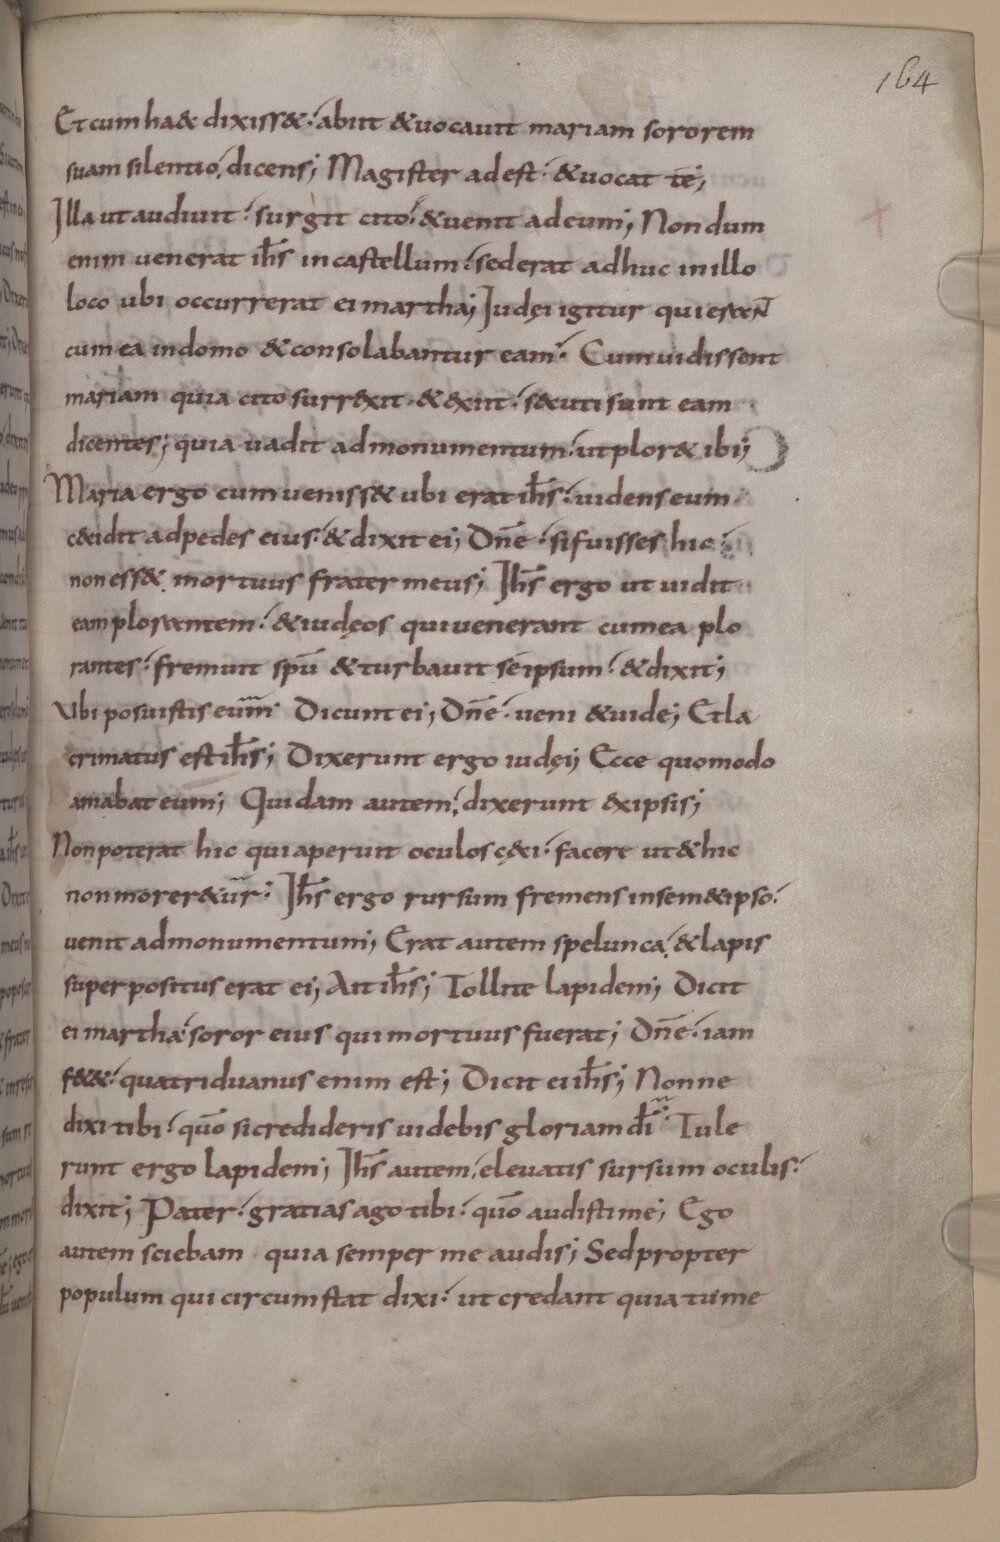 164
Et cum ha& dixiss&· abiit & uocauit mariam sororem
suam silentio, dicens; Magister adest· & uocat te;
Illa ut audiuit· surgit cito· & uenit ad eum; Nondum
enim uenerat ih̅s in castellum· sed erat adhuc in illo
loco ubi occurrerat ei martha; Iudęi igitur qui erañ
cum ea in domo & consolabantur eam· Cum uidissent
mariam quia cito surrexit· & exiit· secuti sunt eam
dicentes; quia uadit ad monumentum· ut plor& ibi;
Maria ergo cum ueniss& ubi erat ih̅s· uidens eum·
cecidit ad pedes eius· & dixit ei; Dn̅e· si fuisses hic·
non ess& mortuus frater meus; Ih̅s ergo ut uidit
eam plorantem· & iudęos qui uenerant cum ea plo
rantes· fremuit spū & turbauit seipsum· & dixit;
Vbi posuistis eum̃ Dicunt ei; Dn̅e· ueni & uide; Et la
crimatus est ih̅s; Dixerunt ergo iudęi; Ecce quomodo
amabat eum; Quidam autem, dixerunt exipsis;
Non poterat hic qui aperuit oculos cęci· facere ut & hic
non morer&ur̃· Ih̅s ergo rursum fremens in sem&ipso·
uenit ad monumentum; Erat autem spelunca, & lapis
superpositus erat ei; Ait ih̅s; Tollite lapidem; Dicit
ei martha· soror eius qui mortuus fuerat; Dn̅e· iam
f&&· quatriduanus enim est; Dicit ei ih̅s; Nonne
dixi tibi· quō si credideris uidebis gloriam dī̃ Tule
runt ergo lapidem; Ih̅s autem, eleuatis sursum oculis·
dixit; Pater· gratias ago tibi· quō audisti me; Ego
autem sciebam quia semper me audis; Sed propter
populum qui circumstat dixi· ut credant quia tu me